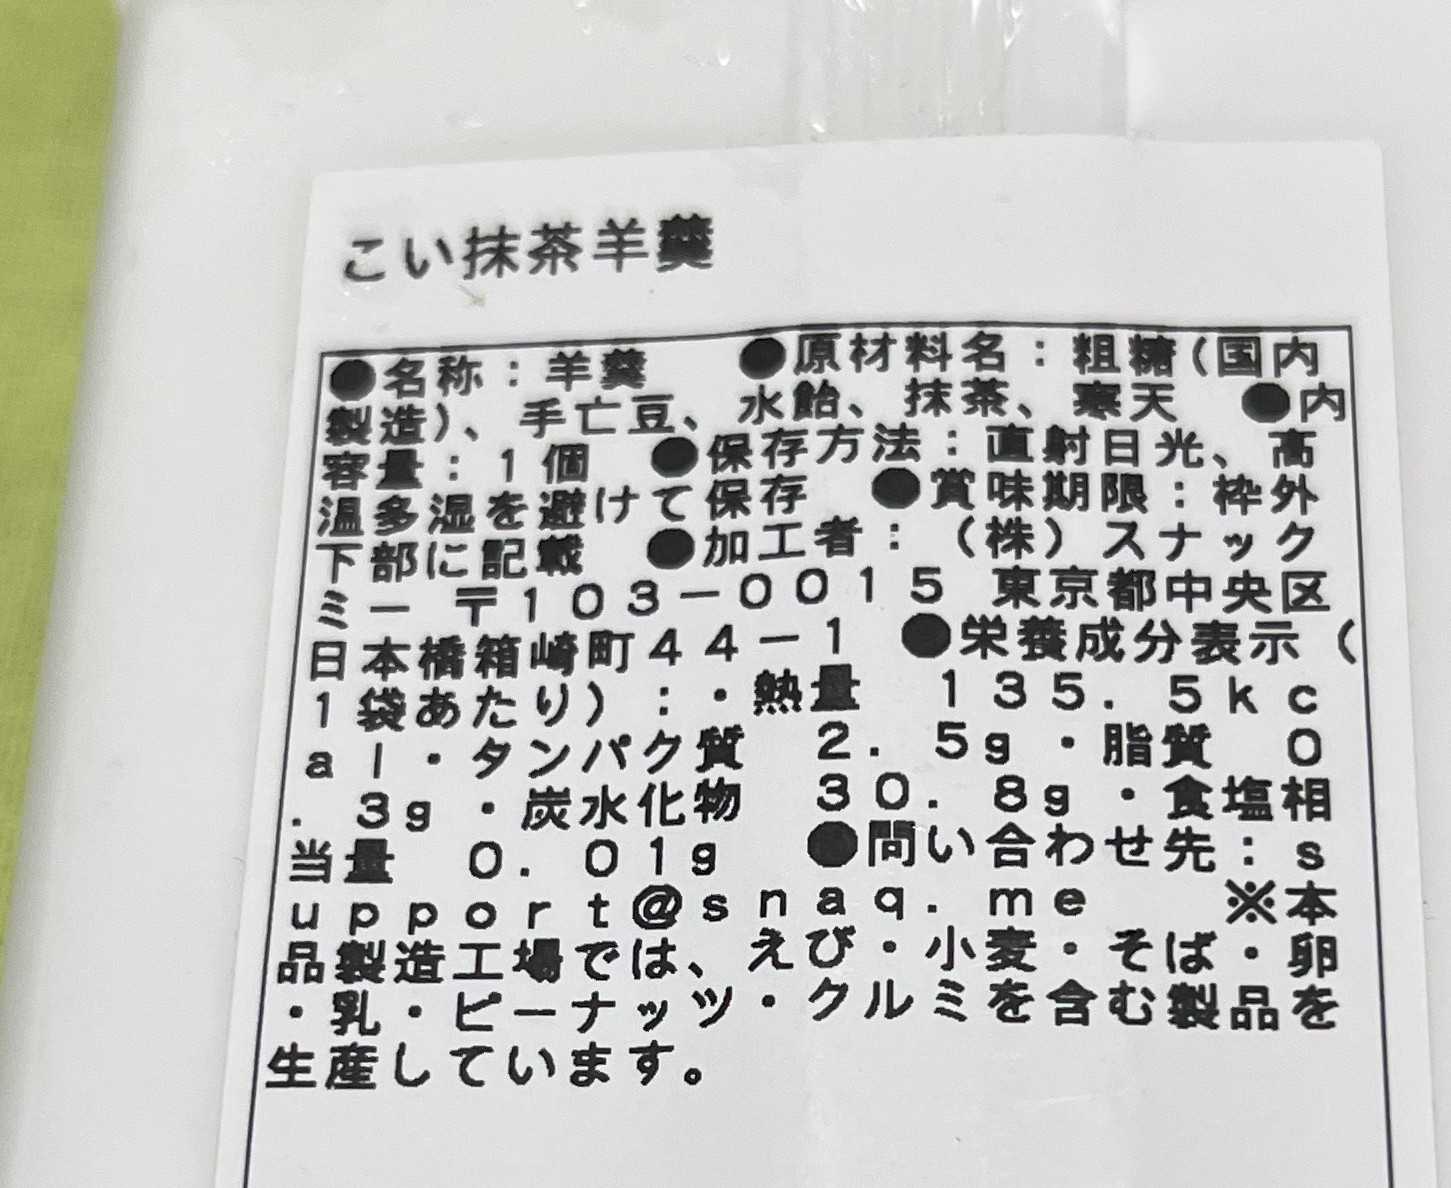 こい抹茶羊羹
●名称：羊羹　●原材料名：粗糖(国内
製造)、手亡豆、水飴、抹茶、寒天　●内
容量：１個　●保存方法：直射日光、高
温多湿を避けて保存　●賞味期限：枠外
下部に記載　●加工者：（株）スナック
ミー 〒１０３－００１５ 東京都中央区
日本橋箱崎町４４－１　●栄養成分表示（
１袋あたり）：・熱量　１３５．５ｋｃ
ａｌ・タンパク質　２．５ｇ・脂質　０
．３ｇ・炭水化物　３０．８ｇ・食塩相
当量　０．０１ｇ　●問い合わせ先：ｓ
ｕｐｐｏｒｔ＠ｓｎａｑ．ｍｅ　　※本
品製造工場では、えび・小麦・そば・卵
・乳・ピーナッツ・クルミを含む製品を
生産しています。